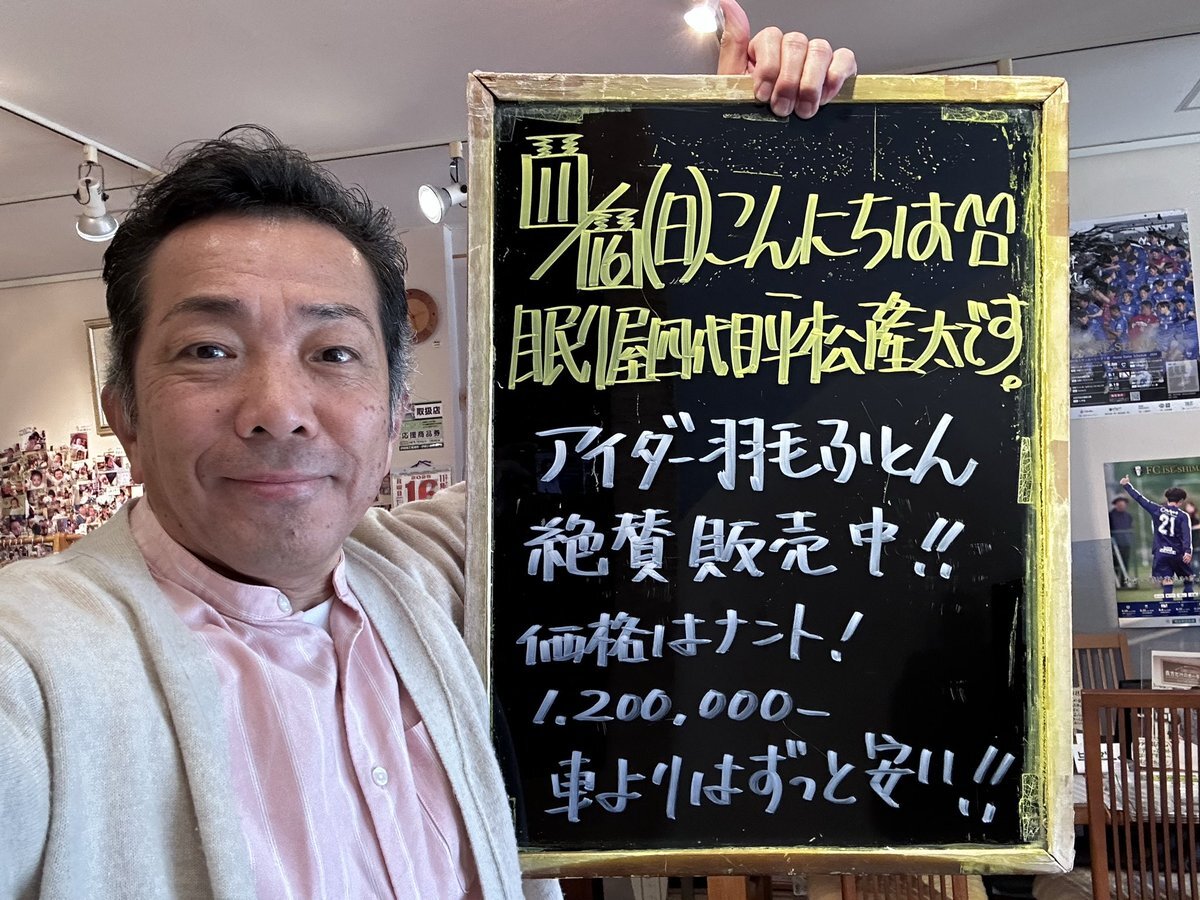 11/16(日)こんにちは^^
眠り屋四代目平松産太です。
アイダー羽毛ふとん
絶賛販売中!!
価格はナント!
1.200,000-
車よりはずっと安い!!
取扱店
応援商品券
2025
16
FC.ISE-SHIMA
21